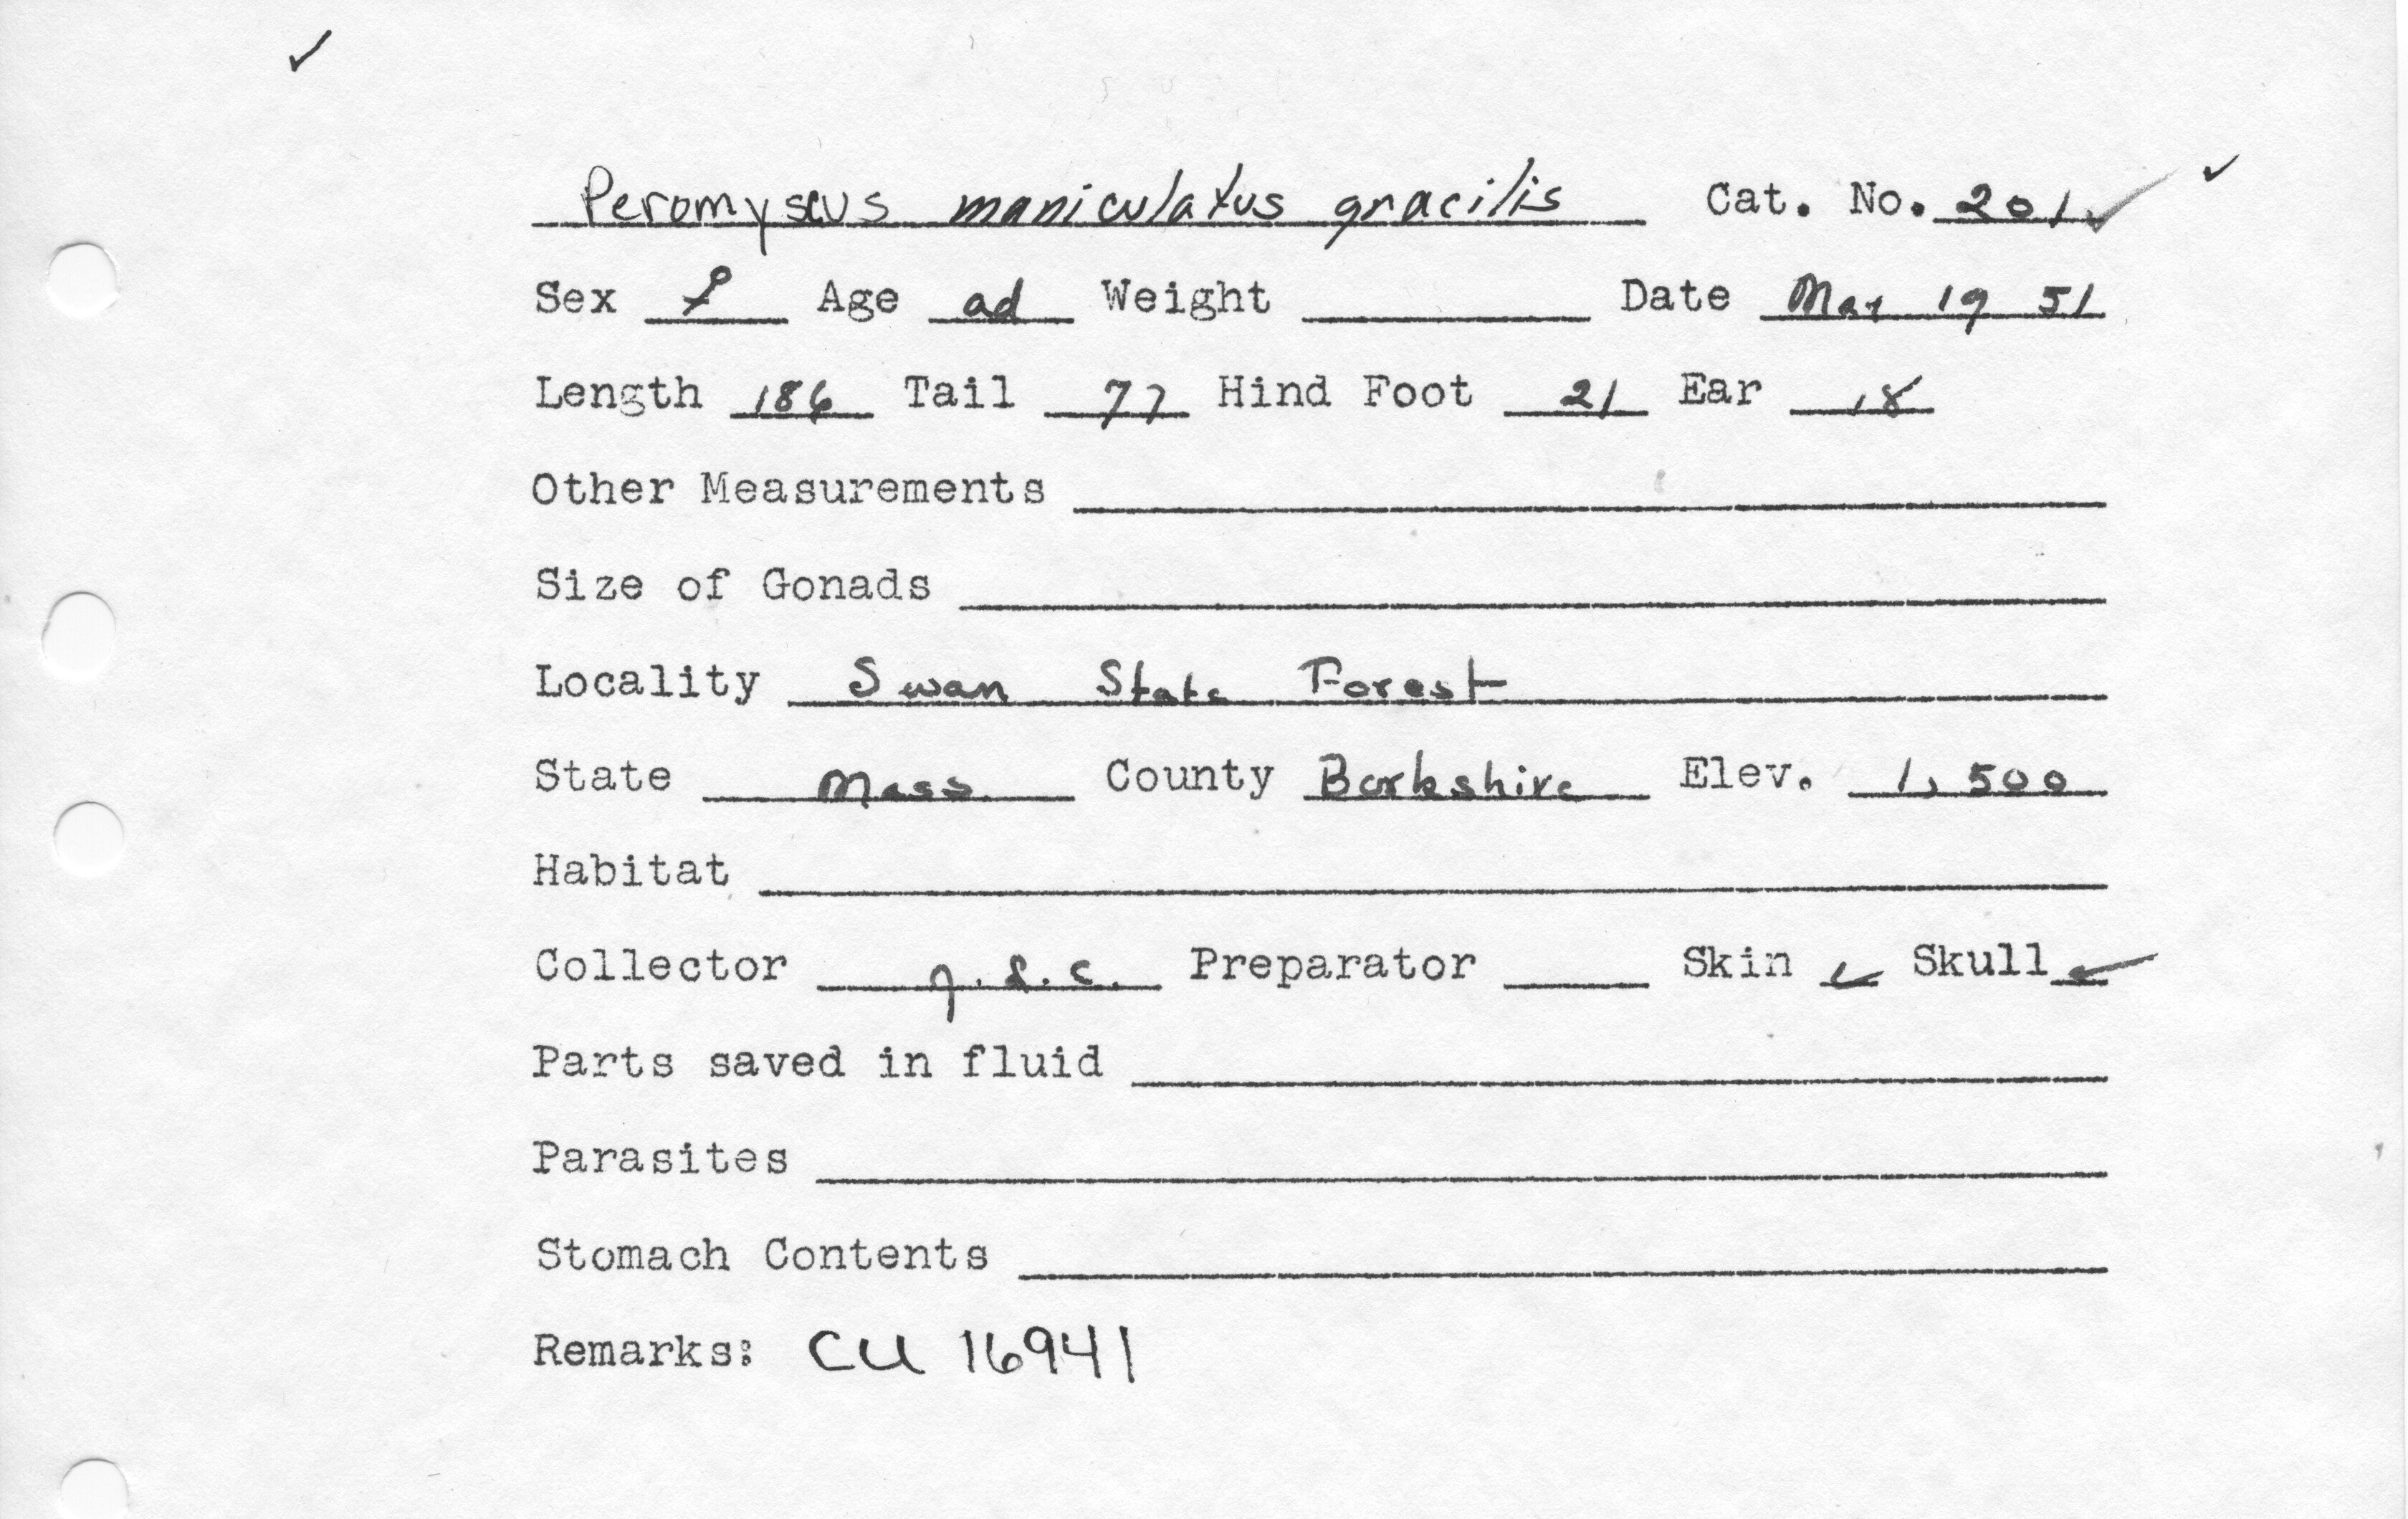 Peromyscus maniculatus gracilis Cat. No. 201
Sex ♀ Age ad Weight Date Mar 19 51
Length 186 Tail 77 Hind Foot 21 Ear 18
Other Measurements
Size of Gonads
Locality Swan State Forest
State Mass County Berkshire Elev. 1,500
Habitat
Collector J.L.C. Preparator Skin ✓ Skull ✓
Parts saved in fluid
Parasites
Stomach Contents
Remarks: CU 16941